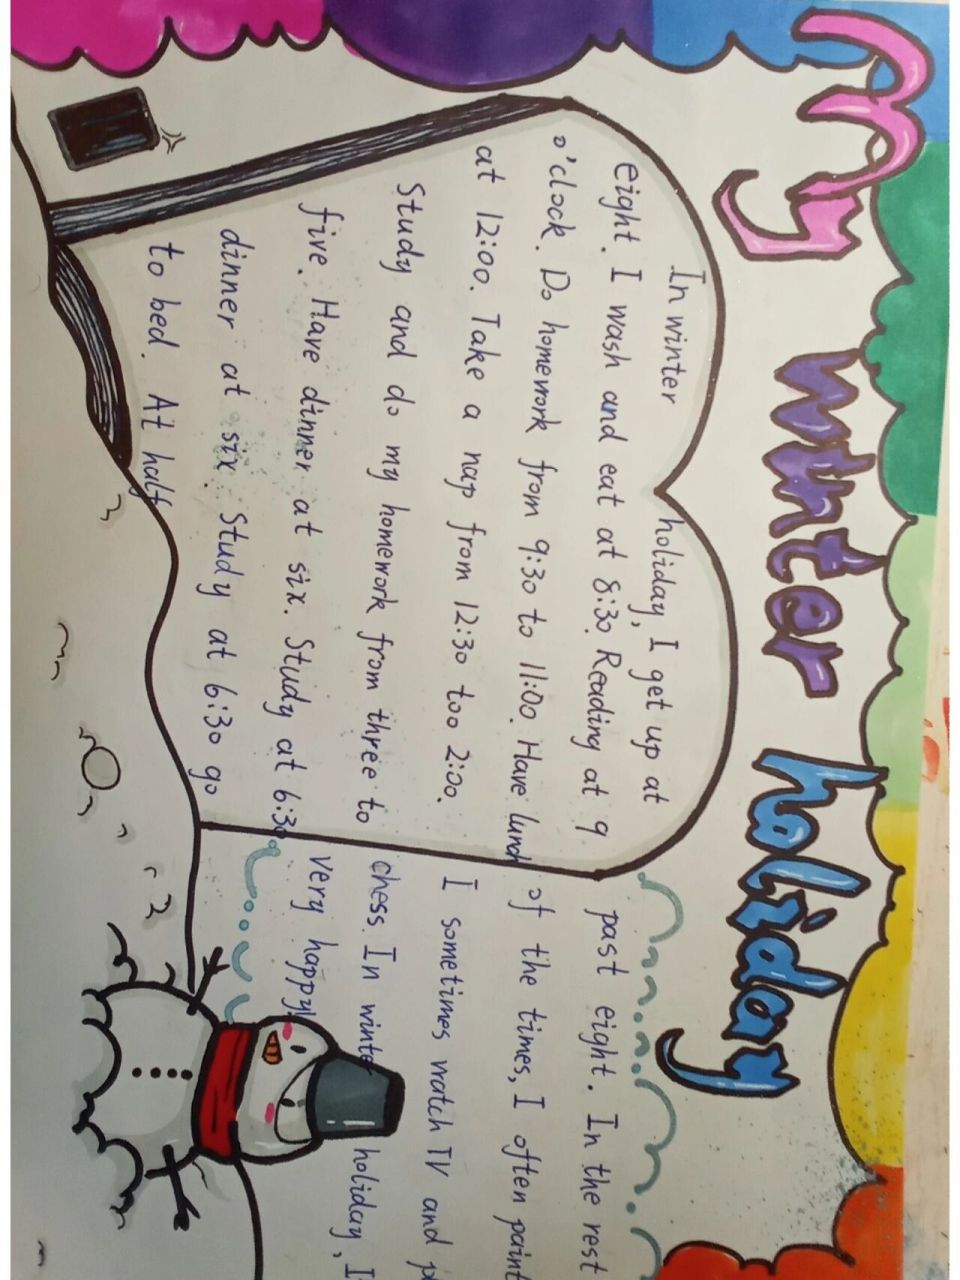 My winter holiday
In winter holiday, I get up at
eight. I wash and eat at 8:30. Reading at 9
o'clock. Do homework from 9:30 to 11:00. Have lunch
at 12:00. Take a nap from 12:30 too 2:00.
Study and do my homework from three to
five. Have dinner at six. Study at 6:30
dinner at six. Study at 6:30 go
to bed. At half
past eight. In the rest
of the times, I often paint
I sometimes watch TV and
chess. In winter holiday, I
very happy!